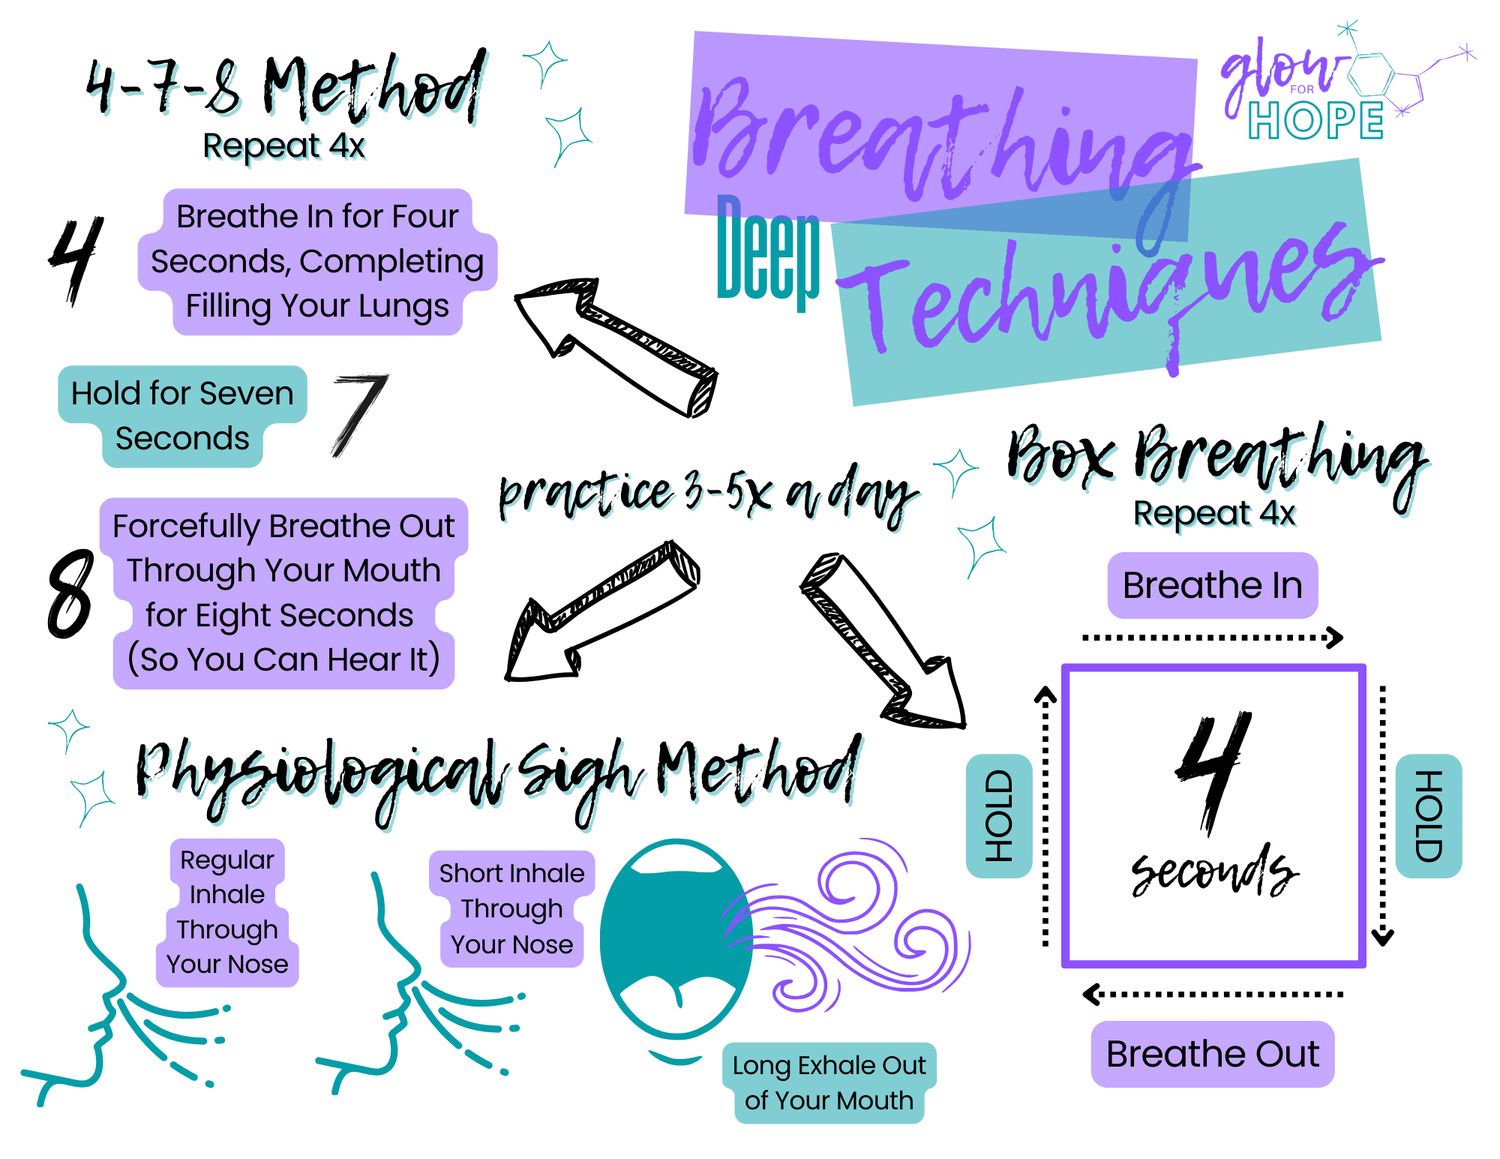 4-7-8 Method
Repeat 4x
4
Breathe In for Four
Seconds, Completing
Filling Your Lungs
Hold for Seven
Seconds
7
8
Forcefully Breathe Out
Through Your Mouth
for Eight Seconds
(So You Can Hear It)
Breathing
Deep
Techniques
glow
FOR
HOPE
practice 3-5x a day
Box Breathing
Repeat 4x
Breathe In
HOLD
4
seconds
HOLD
Breathe Out
Physiological Sigh Method
Regular
Inhale
Through
Your Nose
Short Inhale
Through
Your Nose
Long Exhale Out
of Your Mouth